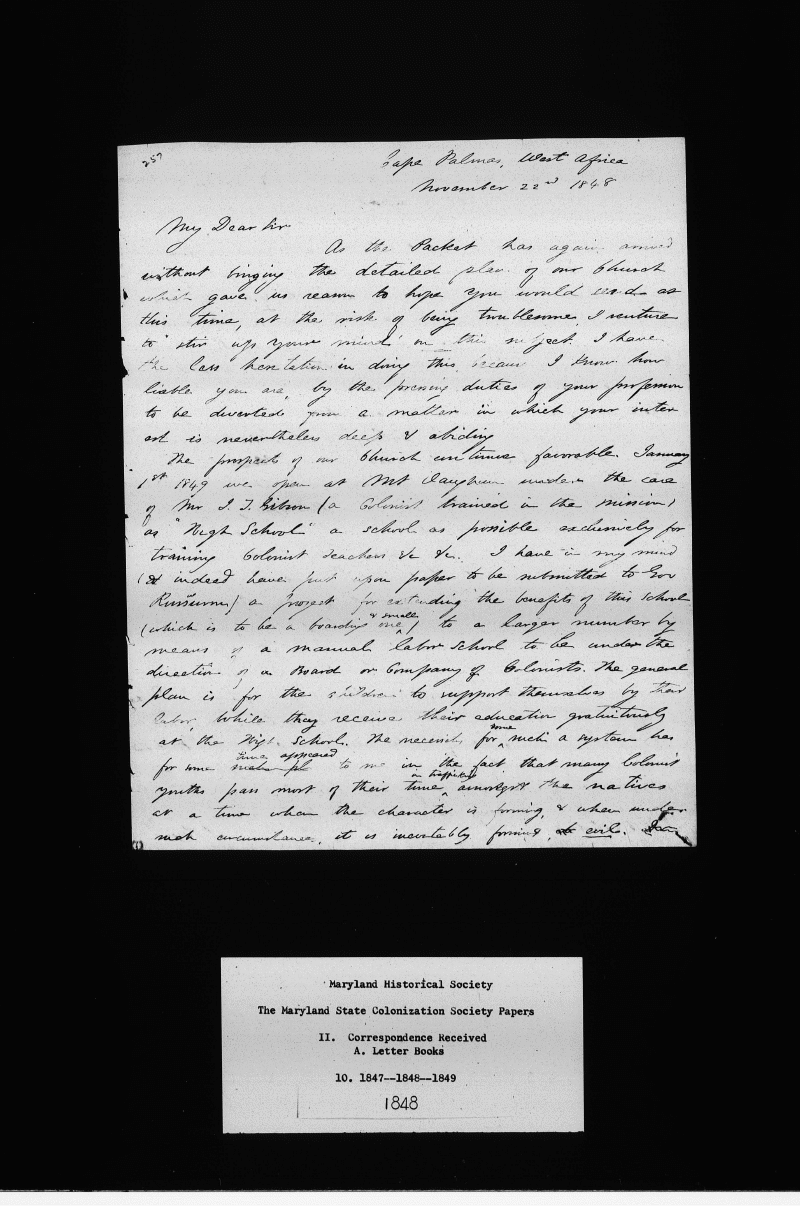 257
Cape Palmas, West Africa
November 22nd 1848
My Dear Sir
As the Packet has again arrived
without bringing the detailed plan of our Church
which gave us reason to hope you would send at
this time, at the risk of being troublesome I venture
to "stir up your mind" on this subject. I have
the less hesitation in doing this, because I know how
liable you are, by the pressing duties of your profession
to be diverted from a matter in which your inter
est is nevertheless deep & abiding
The prospects of our Church continue favorable. January
1st 1849 we open at Mt Vaughan under the care
of Mr J. T. Gibson (a Colonist trained in the mission)
as "High School" a school as possible exclusively for
training Colonist teachers &c &c. I have in my mind
(& indeed have put upon paper to be submitted to Gov
Russwurm) a project for extending the benefits of this school
(which is to be a boarding & small one) to a larger number by
means of a manual labor school to be under the
direction of a Board or Company of Colonists. The general
plan is for the children to support themselves by their
labor, while they receive their education gratuitously
at the High School. The necessity for some such a system has
for some time appeared to me in the fact that many Colonist
youths pass most of their time in trafficking amongst the natives
at a time when the character is forming, & when under
such circumstances, it is inevitably forming to evil.
Maryland Historical Society
The Maryland State Colonization Society Papers
II. Correspondence Received
A. Letter Books
10. 1847--1848--1849
1848